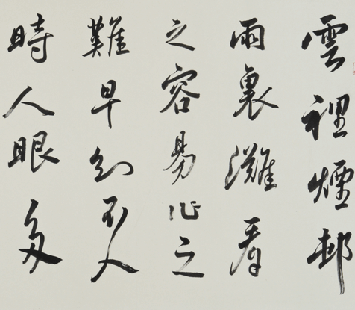 雲裡煙邨
雨裏灘看
之容易作之
難早知不入
時人眼多